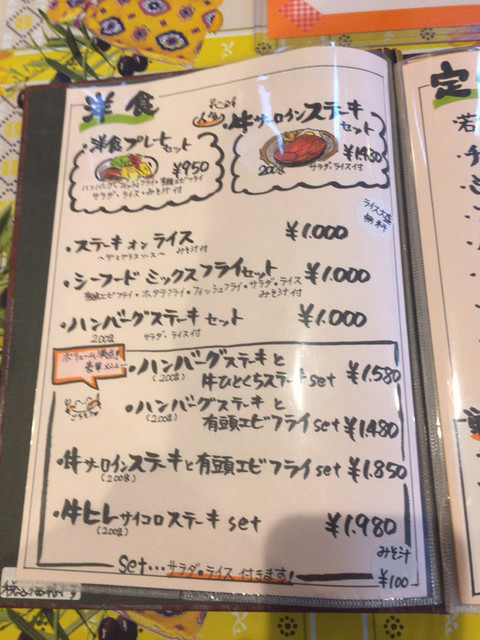 洋食
・洋食プレート
セット
¥950
ハンバーグ・フィッシュフライ・有頭エビフライ
サラダ・ライス・みそ汁付
人気
・牛サーロインステーキ
セット
¥1.480
200g
サラダ・ライス付
ライス大盛
無料
・ステーキオンライス ¥1.000
～デミグラスソース～ みそ汁付
・シーフードミックスフライセット ¥1.000
有頭エビフライ・ホタテフライ・フィッシュフライ・サラダ・ライス
みそ汁付
・ハンバーグステーキセット ¥1.000
200g サラダ・ライス付
ボリューム満点!
豪華メニュー
・ハンバーグステーキと
(200g)
牛ひとくちステーキset ¥1.580
・ハンバーグステーキと
(200g)
有頭エビフライset ¥1.480
・牛サーロインステーキと有頭エビフライset ¥1.850
(200g)
・牛ヒレサイコロステーキset ¥1.980
(200g)
set…サラダ・ライス付きます!
みそ汁
¥100
定